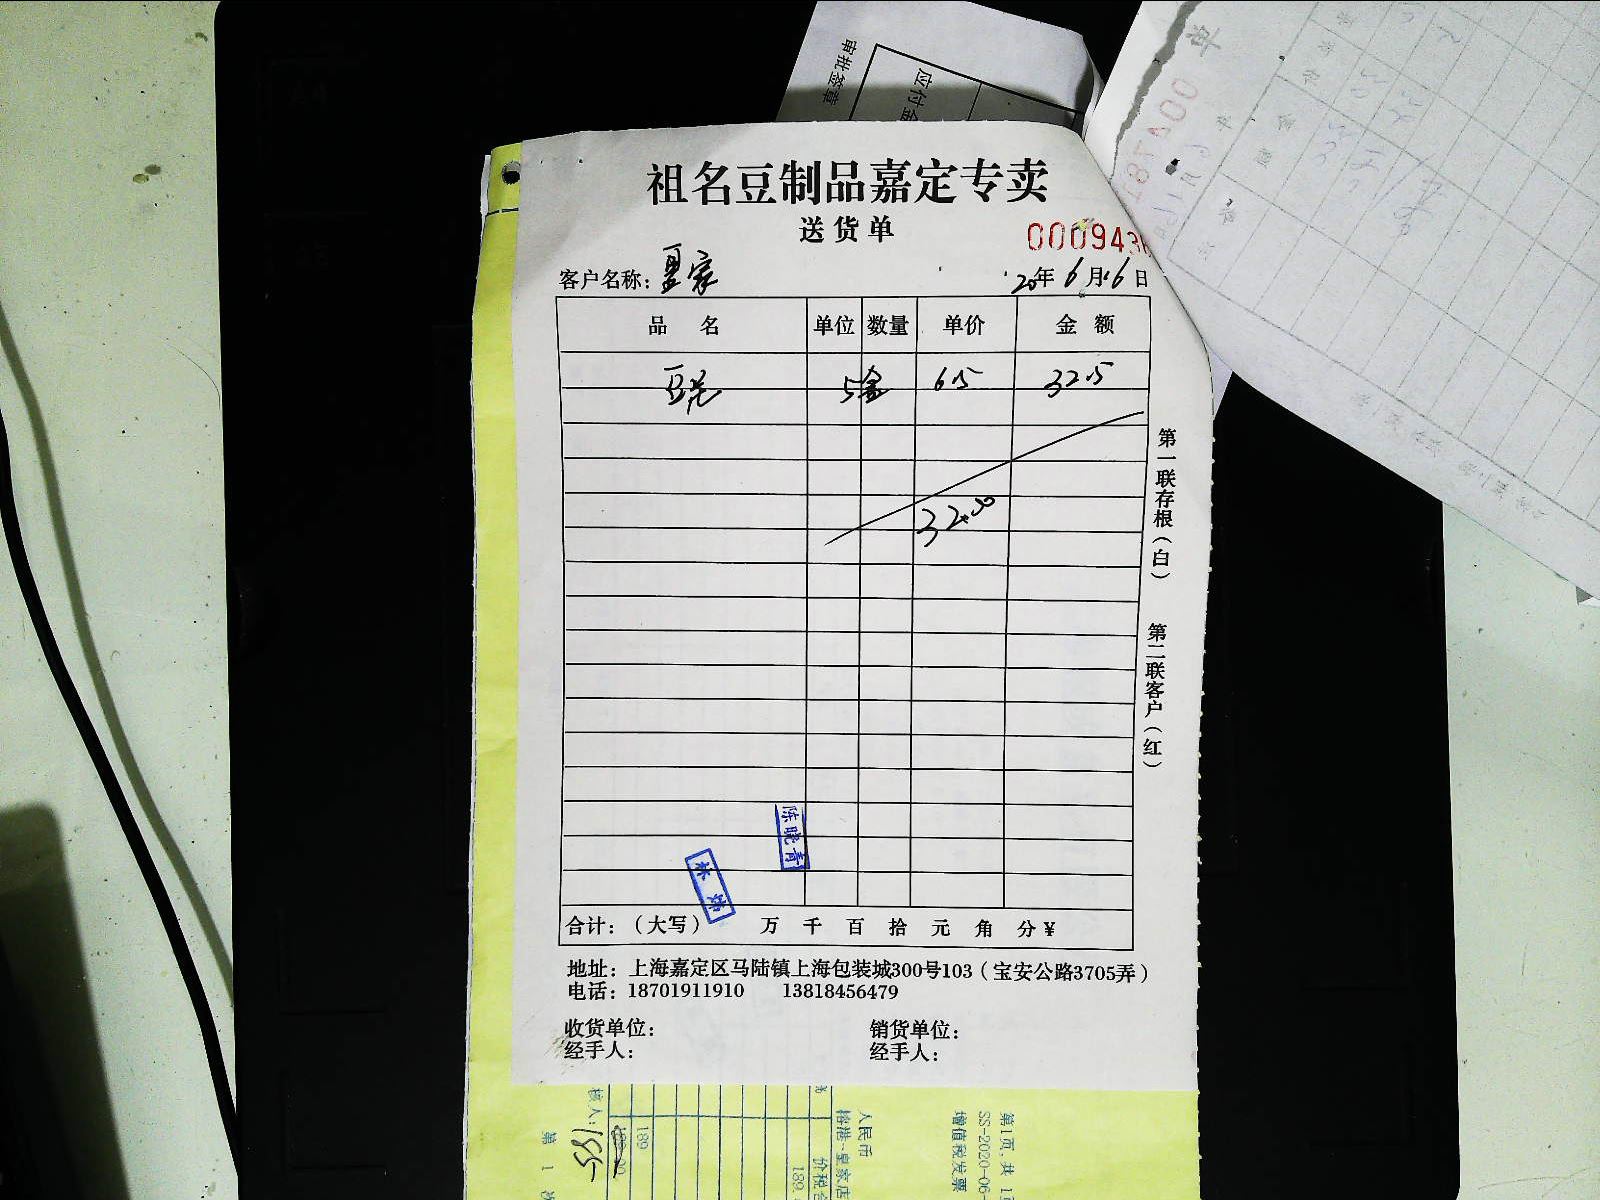 祖名豆制品嘉定专卖
送货单
000943
客户名称：皇家
20年6月16日
品 名 单位 数量 单价 金 额
豆羌 5盒 6.5 32.5
32.50
第一联存根（白）
第二联客户（红）
陈晓青
林炜
合计：（大写） 万 千 百 拾 元 角 分 ¥
地址：上海嘉定区马陆镇上海包装城300号103（宝安公路3705弄）
电话：18701911910 13818456479
收货单位： 销货单位：
经手人： 经手人：
审批签章
应付金
第1页，共1页
SS-2020-06-
增值税发票
人民币
格港-皇家店
价税合
189
189
核人：
185
第 1 次